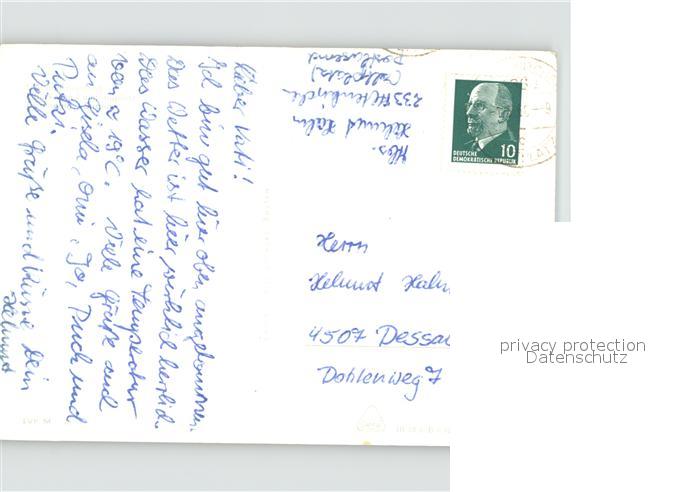 Lieber Vati!
Ich bin gut hier oben angekommen.
Das Wetter ist hier wirklich herrlich.
Das Wasser hat eine Temperatur
von 19°C. Viele Grüße auch
an Gisela, Omi, Jo, Puck und
Putzi.
Viele Grüße und Küsse Dein
Helmut
Abs.
Helmut Hahn
DEUTSCHE
DEMOKRATISCHE REPUBLIK
10
Herrn
Helmut Hahn
4507 Dessau
Dohlenweg 7
privacy protection
Datenschutz